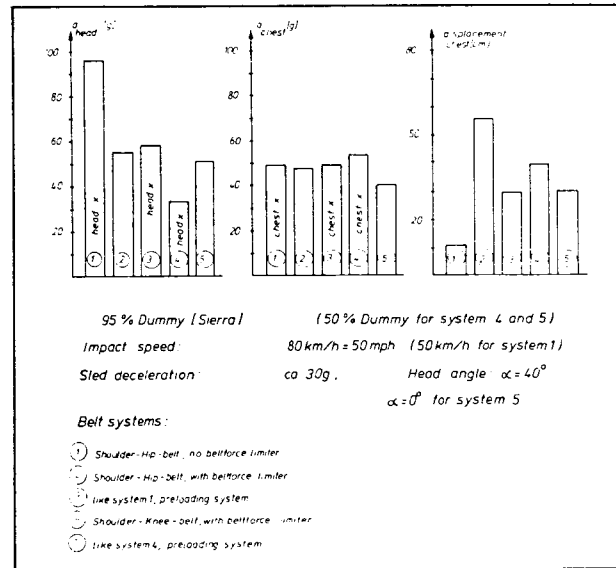 a head [g]
a chest [g]
displacement chest [cm]
100
80
60
40
20
head x
head x
head x
1 2 3 4 5
100
80
60
40
20
chest x
chest x
chest x
1 2 3 4 5
80
50
20
1 2 3 4 5
95 % Dummy [Sierra] (50 % Dummy for system 4 and 5)
Impact speed: 80 km/h = 50 mph (50 km/h for system 1)
Sled deceleration: ca 30g, Head angle: α = 40°
α = 0° for system 5
Belt systems:
1 Shoulder-Hip-belt, no beltforce limiter
Shoulder-Hip-belt, with beltforce limiter
like system 1, preloading system
Shoulder-Knee-belt, with beltforce limiter
like system 4, preloading system